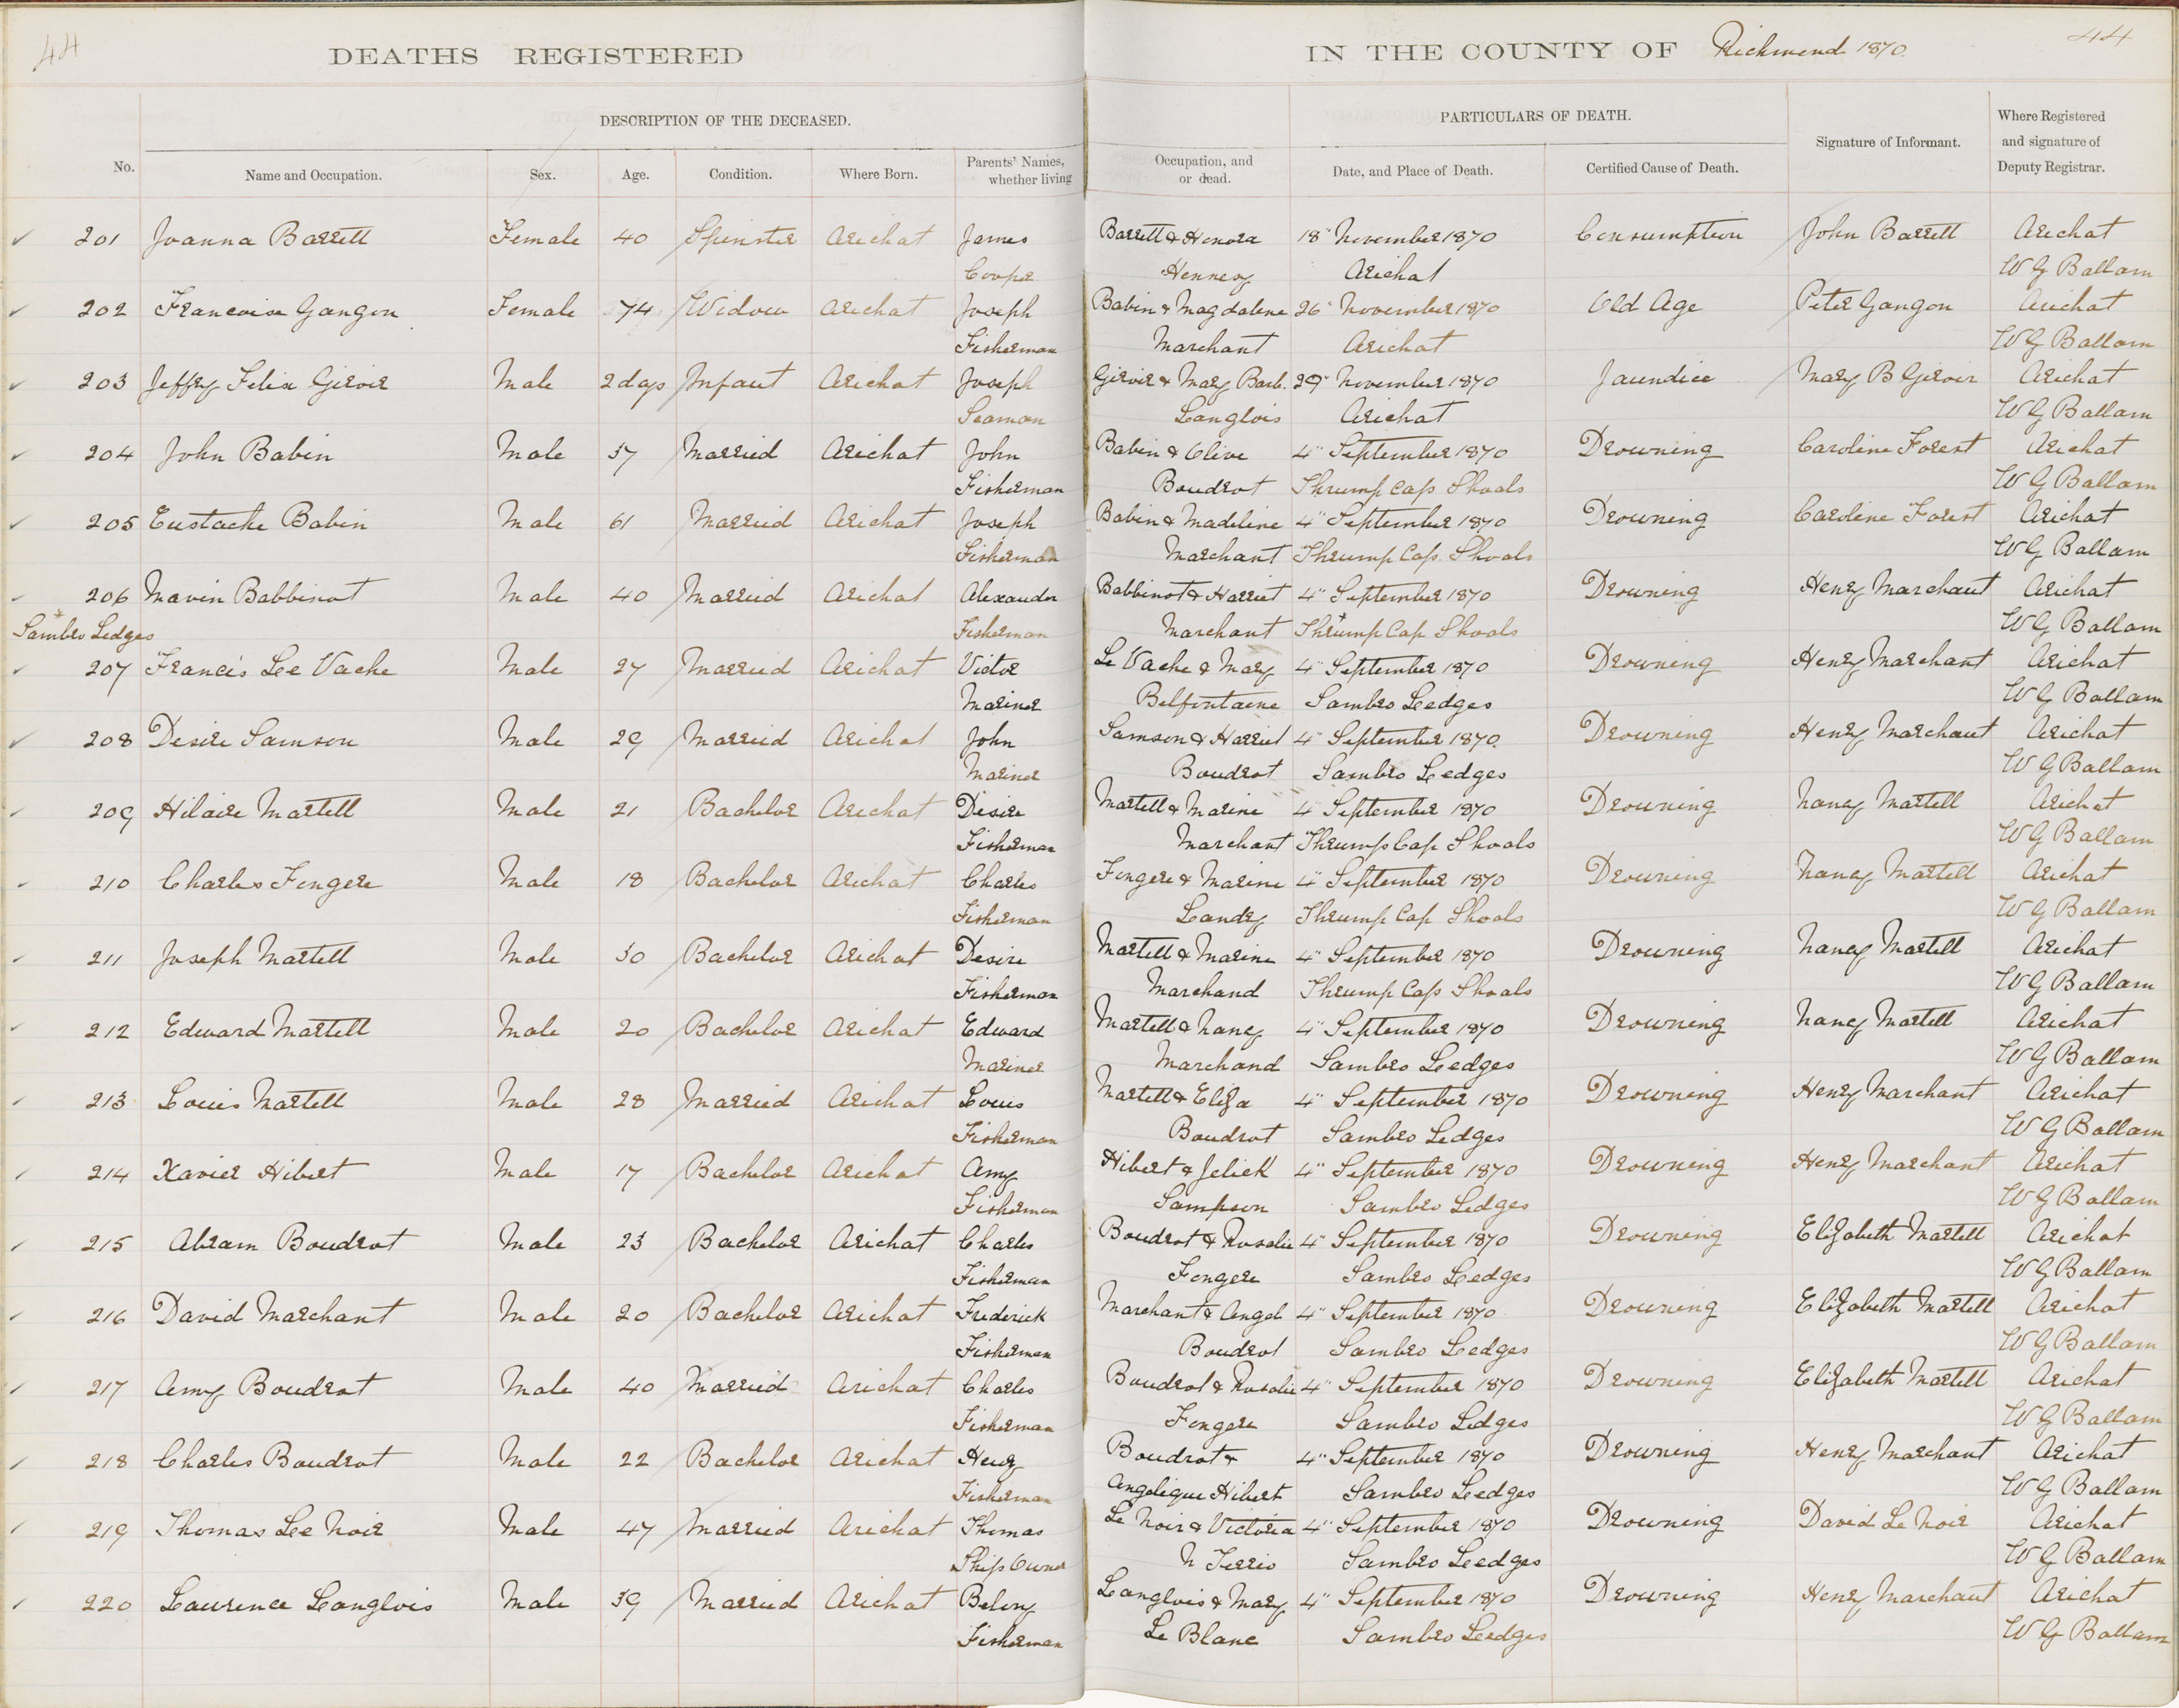 44
DEATHS REGISTERED IN THE COUNTY OF Richmond 1870.
44
DESCRIPTION OF THE DECEASED. PARTICULARS OF DEATH.
No. Name and Occupation. Sex. Age. Condition. Where Born. Parents' Names, whether living Occupation, and or dead. Date, and Place of Death. Certified Cause of Death. Signature of Informant. Where Registered and signature of Deputy Registrar.
201 Joanna Barrett Female 40 Spinster Arichat James Barrett & Honora 18" November 1870 Consumption John Barrett Arichat
Cooper Hennesy Arichat W G Ballam
202 Francoise Gangon Female 74 Widow Arichat Joseph Babin & Magdalene 26" November 1870 Old Age Peter Gangon Arichat
Fisherman Marchant Arichat W G Ballam
203 Jeffry Felix Giroir Male 2 days Infant Arichat Joseph Giroir & Mary Barb. 29" November 1870 Jaundice Mary B Giroir Arichat
Seaman Langlois Arichat W G Ballam
204 John Babin Male 37 Married Arichat John Babin & Olive 4" September 1870 Drowning Caroline Forest Arichat
Fisherman Boudrot Thrump Cap Shoals W G Ballam
205 Eustache Babin Male 61 Married Arichat Joseph Babin & Madeline 4" September 1870 Drowning Caroline Forest Arichat
Fisherman Marchant Thrump Cap Shoals W G Ballam
206 Mavin Babbinot Male 40 Married Arichat Alexander Babbinot & Harriet 4" September 1870 Drowning Henry Marchant Arichat
* Sambro Ledges Fisherman Marchant Thrump Cap Shoals * W G Ballam
207 Francis Le Vache Male 27 Married Arichat Victor Le Vache & Mary 4" September 1870 Drowning Henry Marchant Arichat
Mariner Belfontaine Sambro Ledges W G Ballam
208 Desire Samson Male 29 Married Arichat John Samson & Harriet 4" September 1870. Drowning Henry Marchant Arichat
Mariner Boudrot Sambro Ledges W G Ballam
209 Hilaire Martell Male 21 Bachelor Arichat Desire Martell & Marine 4" September 1870 Drowning Nancy Martell Arichat
Fisherman Marchant Thrump Cap Shoals W G Ballam
210 Charles Fengere Male 18 Bachelor Arichat Charles Fengere & Marine 4" September 1870 Drowning Nancy Martell Arichat
Fisherman Landry Thrump Cap Shoals W G Ballam
211 Joseph Martell Male 30 Bachelor Arichat Desire Martell & Marine 4" September 1870 Drowning Nancy Martell Arichat
Fisherman Marchand Thrump Cap Shoals W G Ballam
212 Edward Martell Male 20 Bachelor Arichat Edward Martell & Nancy 4" September 1870 Drowning Nancy Martell Arichat
Mariner Marchand Sambro Ledges W G Ballam
213 Louis Martell Male 28 Married Arichat Louis Martell & Eliza 4" September 1870 Drowning Henry Marchant Arichat
Fisherman Boudrot Sambro Ledges W G Ballam
214 Xavier Hibert Male 17 Bachelor Arichat Amy Hibert & Jelick 4" September 1870 Drowning Henry Marchant Arichat
Fisherman Sampson Sambro Ledges W G Ballam
215 Abram Boudrot Male 23 Bachelor Arichat Charles Boudrot & Rosalie 4" September 1870 Drowning Elizabeth Martell Arichat
Fisherman Fengere Sambro Ledges W G Ballam
216 David Marchant Male 20 Bachelor Arichat Frederick Marchant & Angel 4" September 1870 Drowning Elizabeth Martell Arichat
Fisherman Boudrot Sambro Ledges W G Ballam
217 Amy Boudrot Male 40 Married Arichat Charles Boudrot & Rosalie 4" September 1870 Drowning Elizabeth Martell Arichat
Fisherman Fengere Sambro Ledges W G Ballam
218 Charles Boudrot Male 22 Bachelor Arichat Henry Boudrot & 4" September 1870 Drowning Henry Marchant Arichat
Fisherman Angelique Hibert Sambro Ledges W G Ballam
219 Thomas Le Noir Male 47 Married Arichat Thomas Le Noir & Victoria 4" September 1870 Drowning David Le Noir Arichat
Ship Owner N Terrio Sambro Ledges W G Ballam
220 Laurence Langlois Male 39 Married Arichat Belony Langlois & Mary 4" September 1870 Drowning Henry Marchant Arichat
Fisherman Le Blanc Sambro Ledges W G Ballam